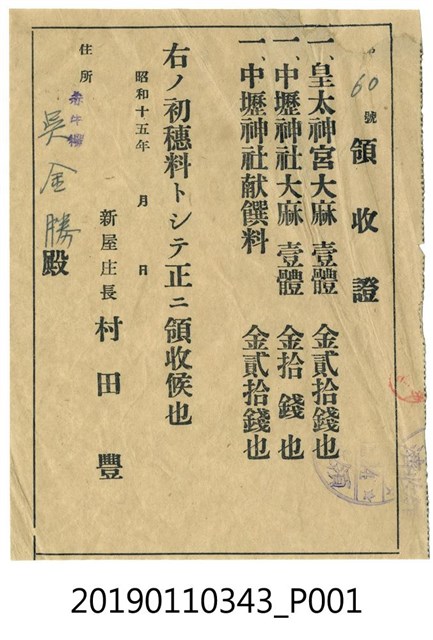 60號
領收證
一、皇太神宮大麻 壹體 金貳拾錢也
一、中壢神社大麻 壹體 金拾錢也
一、中壢神社献饌料 金貳拾錢也
右ノ初穗料トシテ正ニ領收候也
昭和十五年 月 日
新屋庄長 村田豐
住所
吳金勝殿
20190110343_P001